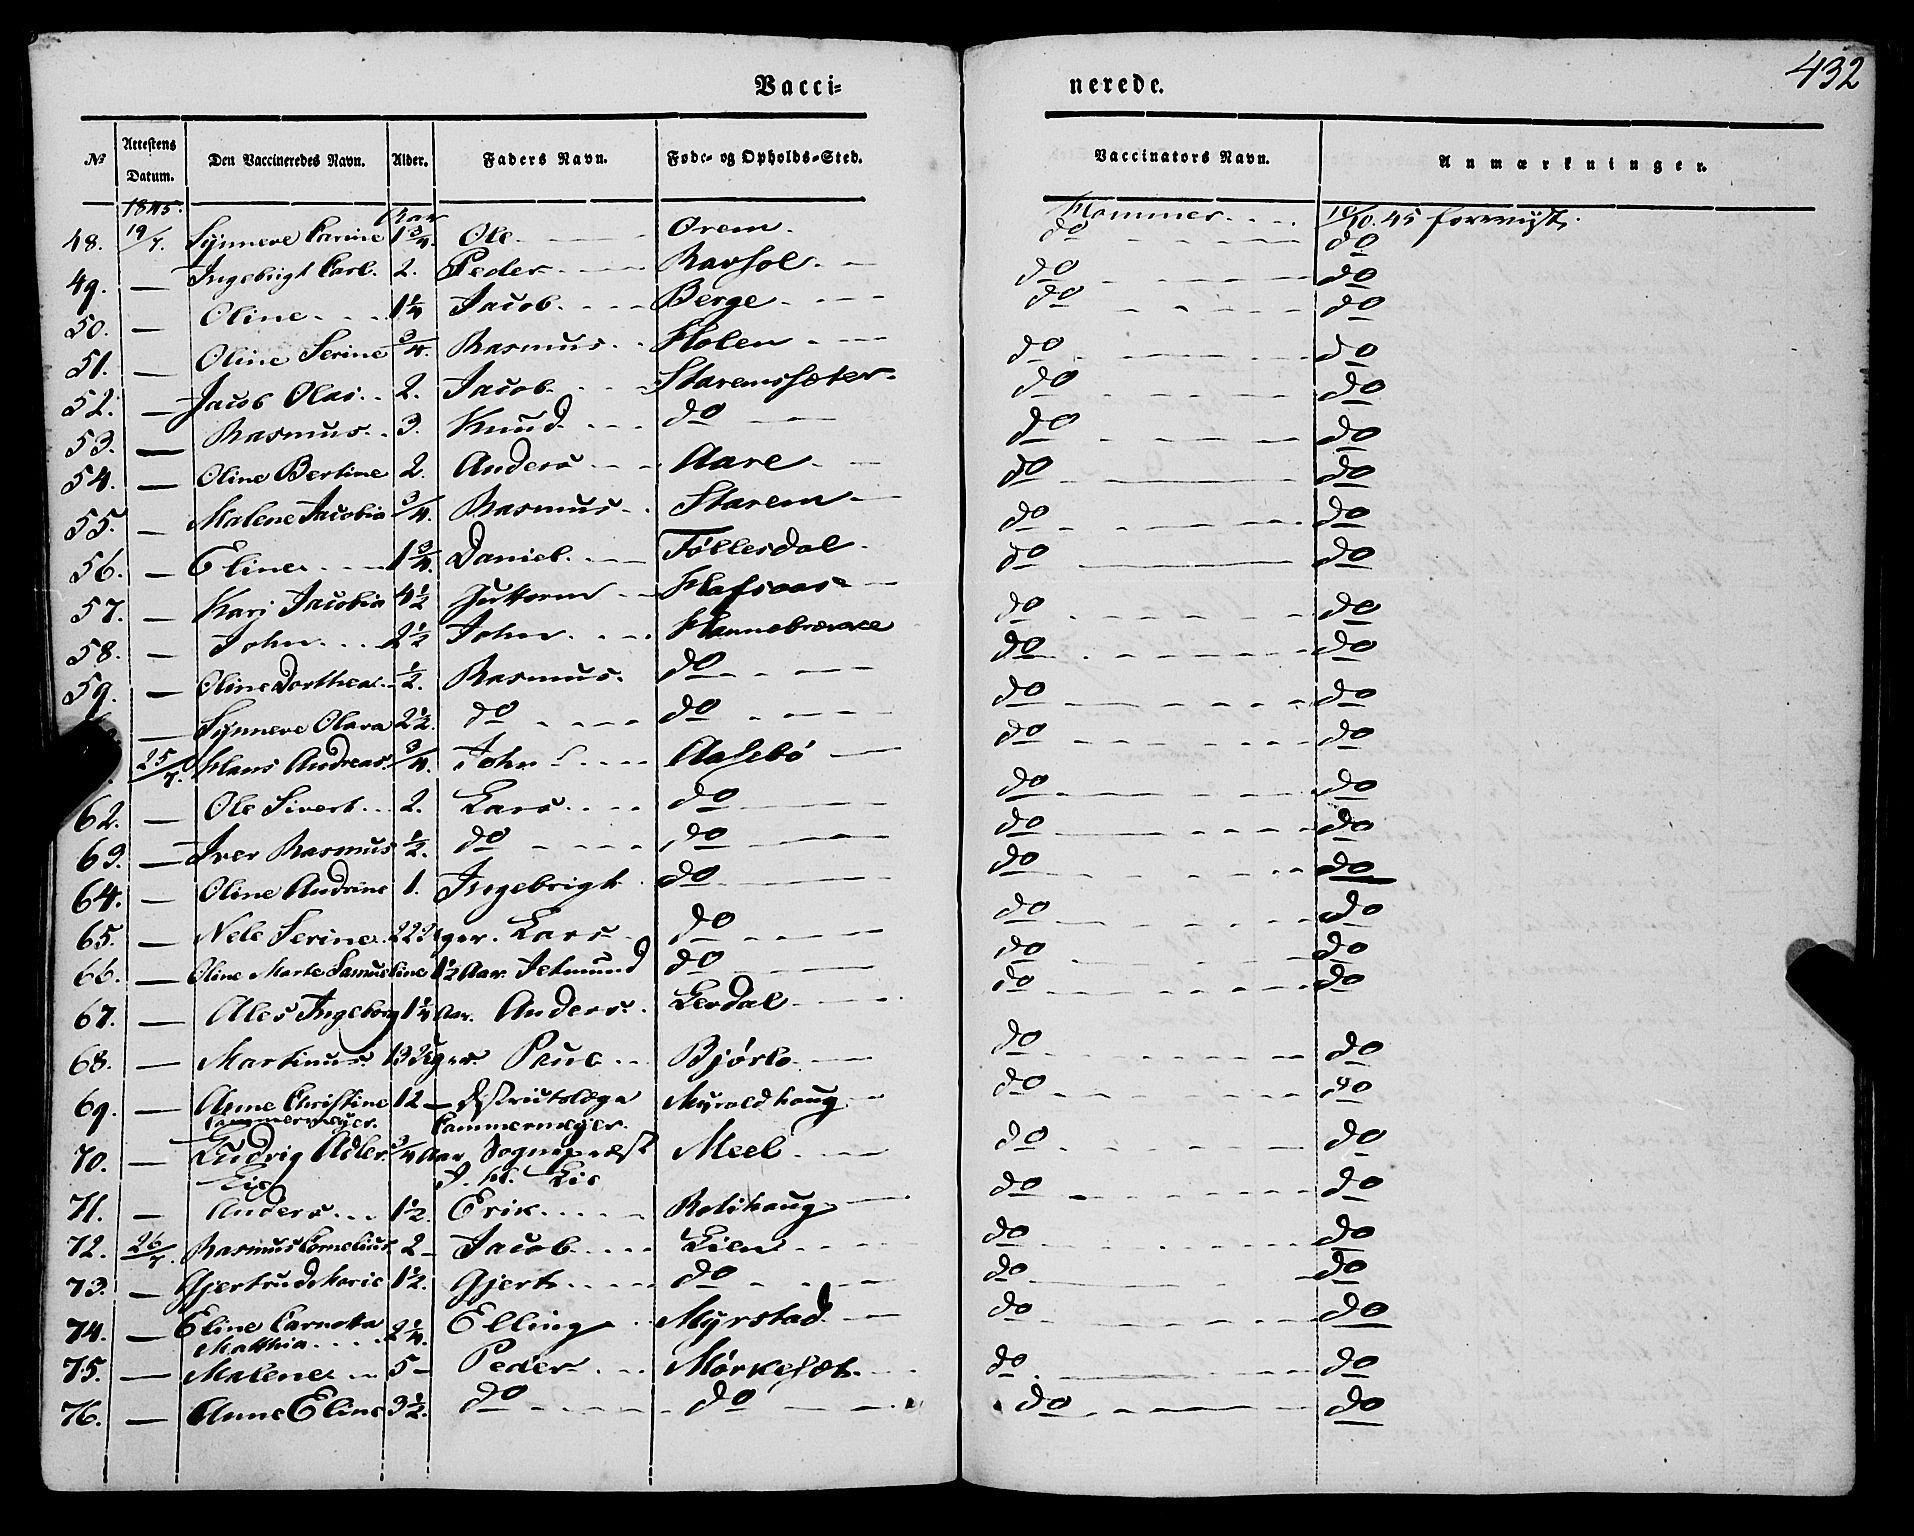 432
Vacci= nerede.
No Attestens Datum. Den Vaccineredes Navn. Alder. Faders Navn. Føde- og Opholds-Sted. Vaccinators Navn. Anmærkninger.
1845. Aar
48. 19/7. Synneve Carine 1 3/4 Ole Orem. Hammer 10/10 45 forevist.
49. — Ingebrigt Carl. 2. Peder Ravsol. do do
50. — Oline 1 1/4 Jacob Berge do do
51. — Oline Serine 3/4. Rasmus Holen do do
52. — Jacob Olai 2. Jacob Staremssæter do do
53. — Rasmus 3. Knud do do do
54. — Oline Bertine 2. Anders Aare do do
55. — Malene Jacobia 3/4. Rasmus Starem do do
56. — Eline 1 3/4. Daniel Föllesdal do do
57. — Kari Jacobia 4 1/2 Guttorm do do
58. — John 2 1/2 John Hannebrække do do
59. — Oline Dorthea 1/2. Rasmus. do do do
— Synneve Olava 2 1/2. do do do do
25/7. Hans Andreas. 3/4. John Aasebö do do
62. — Ole Sivert 2. Lars do do do
63. — Iver Rasmus 1/2. do do do do
64. — Oline Andrine 1. Ingebrigt do do do
65. — Nele Serine 22 Uger. Lars do do do
66. — Oline Marte Samueline 1 1/2 Aar. Jetmund do do do
67. — Ales Ingeborg 1 1/4 Aar. Anders Lerdal do do
68. — Martinus 13 Uger Paul Bjørlo do do
69. — Anne Christine 12 — Districtslæge Myroldhaug do do
Cammermeyer. Cammermeyer.
70. — Ludvig Adler 3/4 Aar Sogneprest Meel do do
Lie Lie
71. — Anders 1 1/2. Erik Rotihaug do do
72. 26/7. Rasmus Cornelius 2 — Jacob Lien do do
73. — Gjertrud Marie 1 1/2. Gjert do do do
74. — Eline Carnota 2 1/4. Elling Myrstad do do
Matthia
75. — Malene 5 — Peder Mørkesæt do do
76. — Anne Eline 3 1/2. do do do do